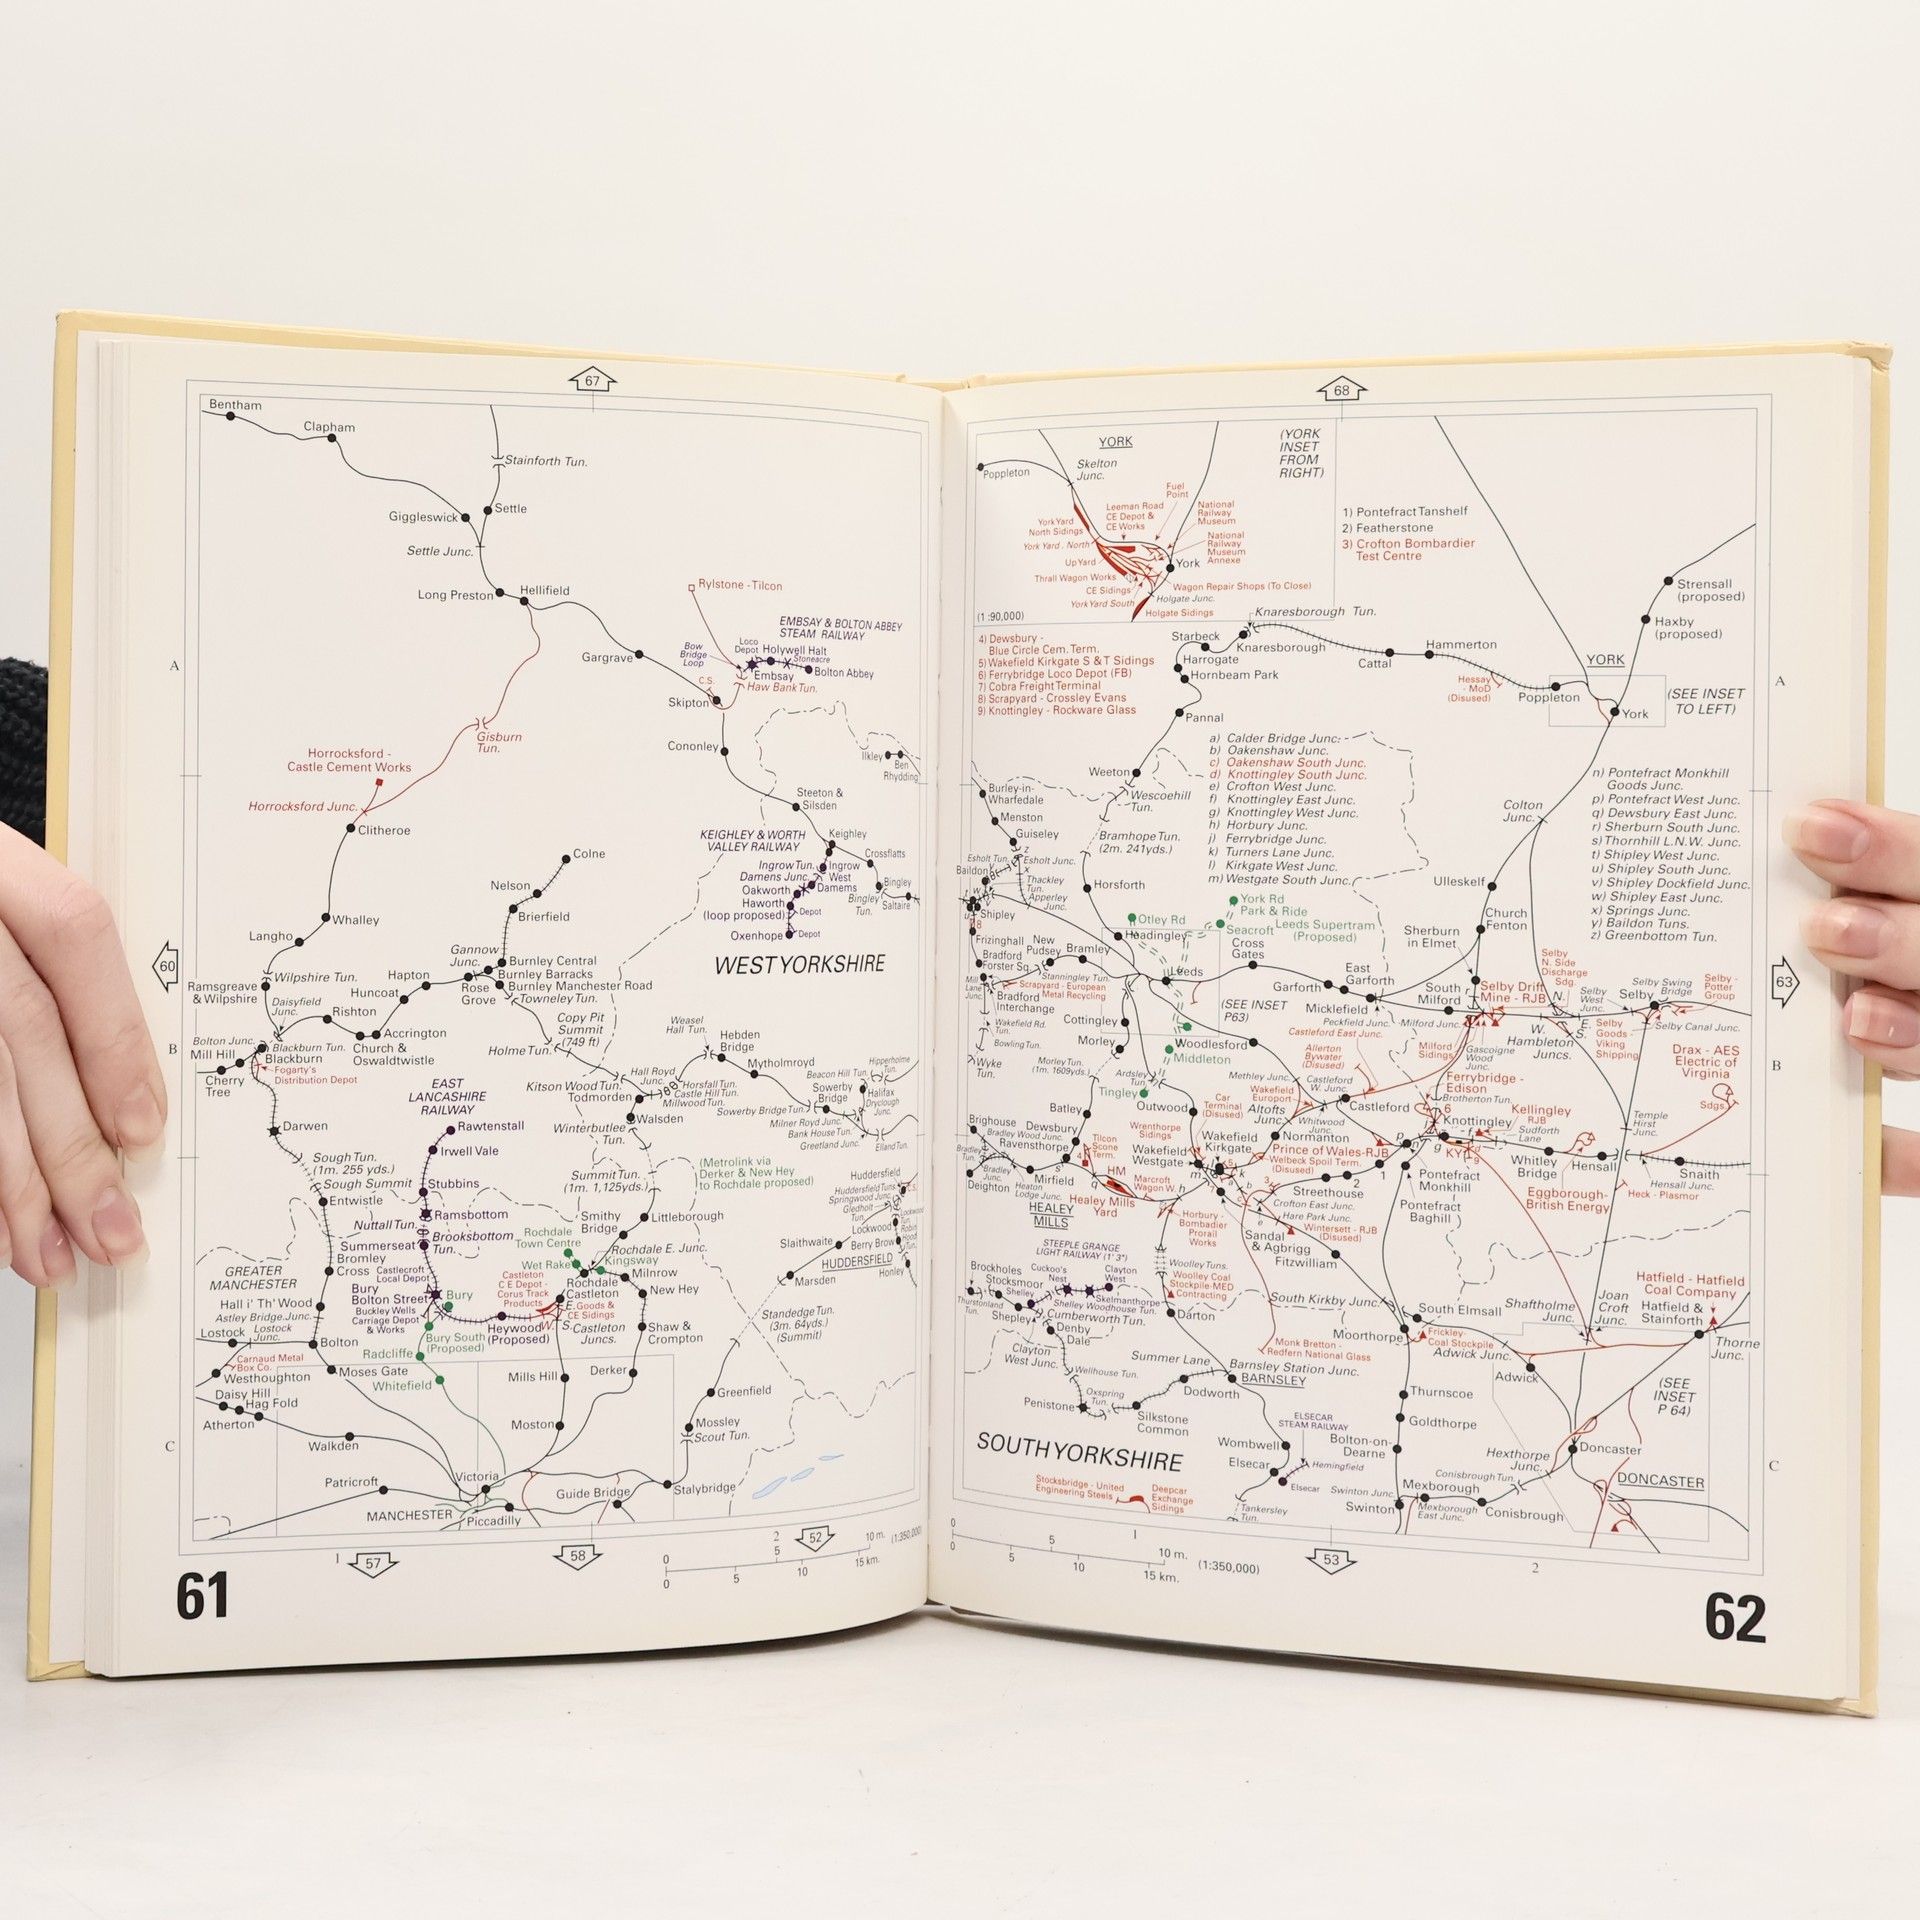 67
Bentham
Clapham
Stainforth Tun.
Settle
Giggleswick
Settle Junc.
Long Preston
Hellifield
Rylstone - Tilcon
EMBSAY & BOLTON ABBEY
STEAM RAILWAY
Bow
Bridge
Loop
Loco
Depot
Holywell Halt
Stoneacre
Embsay
Bolton Abbey
Haw Bank Tun.
C.S.
Gargrave
Skipton
A
Gisburn
Tun.
Horrocksford -
Castle Cement Works
Horrocksford Junc.
Clitheroe
Cononley
Ilkley
Ben
Rhydding
Steeton &
Silsden
KEIGHLEY & WORTH
VALLEY RAILWAY
Keighley
Crossflatts
Ingrow Tun.
Ingrow
West
Damens Junc.
Damems
Oakworth
Haworth
(loop proposed)
Depot
Oxenhope
Depot
Bingley
Bingley
Tun.
Saltaire
Colne
Nelson
Brierfield
Whalley
Langho
60
Wilpshire Tun.
Ramsgreave
& Wilpshire
Daisyfield
Junc.
Gannow
Junc.
Burnley Central
Burnley Barracks
Burnley Manchester Road
Hapton
Rose
Grove
Towneley Tun.
Huncoat
Rishton
Accrington
Church &
Oswaldtwistle
Copy Pit
Summit
(749 ft)
Holme Tun.
WEST YORKSHIRE
B
Bolton Junc.
Mill Hill
Blackburn Tun.
Blackburn
Cherry
Tree
Fogarty's
Distribution Depot
Weasel
Hall Tun.
Hebden
Bridge
Mytholmroyd
Hall Royd
Junc.
Kitson Wood Tun.
Todmorden
Horsfall Tun.
Castle Hill Tun.
Millwood Tun.
Walsden
Winterbutlee
Tun.
Hipperholme
Tun.
Beacon Hill Tun.
Sowerby
Bridge
Halifax
Dryclough
Junc.
Sowerby Bridge Tun.
Milner Royd Junc.
Bank House Tun.
Greetland Junc.
Elland Tun.
EAST
LANCASHIRE
RAILWAY
Rawtenstall
Irwell Vale
Stubbins
Ramsbottom
Nuttall Tun.
Brooksbottom
Tun.
Summerseat
Darwen
Sough Tun.
(1m. 255 yds.)
Sough Summit
Entwistle
Bromley
Cross
Hall i' Th' Wood
Astley Bridge Junc.
Lostock
Lostock
Junc.
Bolton
Carnaud Metal
Box Co.
Westhoughton
Moses Gate
Daisy Hill
Hag Fold
Atherton
Walkden
GREATER
MANCHESTER
Summit Tun.
(1m. 1,125yds.)
(Metrolink via
Derker & New Hey
to Rochdale proposed)
Smithy
Bridge
Littleborough
Rochdale
Town Centre
Wet Rake
Rochdale E. Junc.
Kingsway
Rochdale
Milnrow
New Hey
Castleton
Castleton
C E Depot -
Corus Track
Products
E. Goods &
CE Sidings
W.
S. Castleton
Juncs.
Castlecroft
Local Depot
Bury
Bolton Street
Bury
Buckley Wells
Carriage Depot
& Works
Heywood
(Proposed)
Bury South
(Proposed)
Radcliffe
Whitefield
Shaw &
Crompton
Derker
Mills Hill
Moston
Huddersfield
Huddersfield Tun.
Springwood Junc.
Gledholt
Tun.
Lockwood
Lockwood
Tun.
Berry Brow
Slaithwaite
Marsden
HUDDERSFIELD
Honley
Standedge Tun.
(3m. 64yds.)
(Summit)
Greenfield
Mossley
Scout Tun.
Stalybridge
Guide Bridge
Victoria
Patricroft
MANCHESTER
Piccadilly
C
1
57
58
2
52
0 5 10 m.
0 5 10 15 km.
(1:350,000)
61
68
YORK
Poppleton
Skelton
Junc.
(YORK
INSET
FROM
RIGHT)
Fuel
Point
Leeman Road
CE Depot &
CE Works
National
Railway
Museum
York Yard
North Sidings
York Yard . North
National
Railway
Museum
Annexe
Up Yard
York
Thrall Wagon Works
CE Sidings
Wagon Repair Shops (To Close)
Holgate Junc.
York Yard South
Holgate Sidings
(1:90,000)
1) Pontefract Tanshelf
2) Featherstone
3) Crofton Bombardier
Test Centre
4) Dewsbury -
Blue Circle Cem. Term.
5) Wakefield Kirkgate S & T Sidings
6) Ferrybridge Loco Depot (FB)
7) Cobra Freight Terminal
8) Scrapyard - Crossley Evans
9) Knottingley - Rockware Glass
Strensall
(proposed)
Haxby
(proposed)
Knaresborough Tun.
Starbeck
Knaresborough
Harrogate
Hornbeam Park
Cattal
Hammerton
Hessay
- MoD
(Disused)
YORK
Poppleton
York
(SEE INSET
TO LEFT)
A
Pannal
Weeton
Wescoehill
Tun.
Bramhope Tun.
(2m. 241yds.)
a) Calder Bridge Junc.
b) Oakenshaw Junc.
c) Oakenshaw South Junc.
d) Knottingley South Junc.
e) Crofton West Junc.
f) Knottingley East Junc.
g) Knottingley West Junc.
h) Horbury Junc.
j) Ferrybridge Junc.
k) Turners Lane Junc.
l) Kirkgate West Junc.
m) Westgate South Junc.
n) Pontefract Monkhill
Goods Junc.
p) Pontefract West Junc.
q) Dewsbury East Junc.
r) Sherburn South Junc.
s) Thornhill L.N.W. Junc.
t) Shipley West Junc.
u) Shipley South Junc.
v) Shipley Dockfield Junc.
w) Shipley East Junc.
x) Springs Junc.
y) Baildon Tuns.
z) Greenbottom Tun.
Colton
Junc.
Burley-in-
Wharfedale
Menston
Guiseley
Esholt Tun.
Esholt Junc.
Baildon
Thackley
Tun.
Apperley
Junc.
Shipley
Horsforth
Ulleskelf
Church
Fenton
Sherburn
in Elmet
York Rd
Park & Ride
Otley Rd
Seacroft
Leeds Supertram
(Proposed)
Headingley
Cross
Gates
Frizinghall
New
Pudsey
Bramley
Bradford
Forster Sq.
Stanningley Tun.
Leeds
Mill
Lane
Junc.
Scrapyard - European
Metal Recycling
Bradford
Interchange
East
Garforth
Garforth
Micklefield
Peckfield Junc.
South
Milford
Milford Junc.
Selby Drift
Mine - RJB
Selby
N. Side
Discharge
Sdg.
N.
E.
S.
W.
Hambleton
Juncs.
Selby
West
Junc.
Selby Swing
Bridge
Selby
Selby -
Potter
Group
Selby Canal Junc.
Selby
Goods -
Viking
Shipping
63
(SEE INSET
P63)
Cottingley
Morley
Wakefield Rd.
Tun.
Bowling Tun.
Wyke
Tun.
Morley Tun.
(1m. 1609yds.)
Ardsley
Tun.
Middleton
Tingley
Woodlesford
Castleford East Junc.
Allerton
Bywater
(Disused)
Milford
Sidings
Gascoigne
Wood
Junc.
Methley Junc.
Castleford
W. Junc.
Castleford
Ferrybridge -
Edison
Brotherton Tun.
Knottingley
Kellingley
RJB
Sudforth
Lane
Drax - AES
Electric of
Virginia
Sdgs.
B
Temple
Hirst
Junc.
Outwood
Car
Terminal
(Disused)
Wakefield
Europort
Altofts
Junc.
Whitwood
Junc.
Normanton
Batley
Wrenthorpe
Sidings
Wakefield
Westgate
Wakefield
Kirkgate
Prince of Wales-RJB
Welbeck Spoil Term.
(Disused)
Brighouse
Dewsbury
Bradley Wood Junc.
Ravensthorpe
Tilcon
Stone
Term.
Bradley
Tun.
Bradley
Junc.
Deighton
Heaton
Lodge Junc.
Mirfield
HM
Healey Mills
Yard
Marcroft
Wagon W.
HEALEY
MILLS
Horbury -
Bombadier
Prorail
Works
Streethouse
Crofton East Junc.
Hare Park Junc.
Sandal
& Agbrigg
Wintersett - RJB
(Disused)
Fitzwilliam
Pontefract
Monkhill
Pontefract
Baghill
KY
Whitley
Bridge
Hensall
Snaith
Hensall Junc.
Heck - Plasmor
Eggborough-
British Energy
STEEPLE GRANGE
LIGHT RAILWAY (1' 3")
Brockholes
Stocksmoor
Cuckoo's
Nest
Clayton
West
Shelley
Skelmanthorpe
Thurstonland
Tun.
Shelley Woodhouse Tun.
Shepley
Cumberworth Tun.
Denby
Dale
Clayton
West Junc.
Wellhouse Tun.
Woolley Tuns.
Woolley Coal
Stockpile-MED
Contracting
Darton
South Kirkby Junc.
South Elmsall
Moorthorpe
Frickley-
Coal Stockpile
Adwick Junc.
Adwick
Shaftholme
Junc.
Joan
Croft
Junc.
Hatfield - Hatfield
Coal Company
Hatfield &
Stainforth
Thorne
Junc.
Monk Bretton -
Redfern National Glass
Summer Lane
Barnsley Station Junc.
BARNSLEY
Dodworth
Penistone
Oxspring
Tun.
Silkstone
Common
SOUTH YORKSHIRE
Thurnscoe
Goldthorpe
Bolton-on-
Dearne
ELSECAR
STEAM RAILWAY
Wombwell
Elsecar
Hemingfield
Elsecar
Tankersley
Tun.
Stocksbridge - United
Engineering Steels
Deepcar
Exchange
Sidings
Swinton Junc.
Swinton
Mexborough
Mexborough
East Junc.
Conisbrough Tun.
Conisbrough
Hexthorpe
Junc.
Doncaster
DONCASTER
(SEE
INSET
P 64)
C
0 5 10 m.
0 5 10 15 km.
(1:350,000)
1
53
2
62